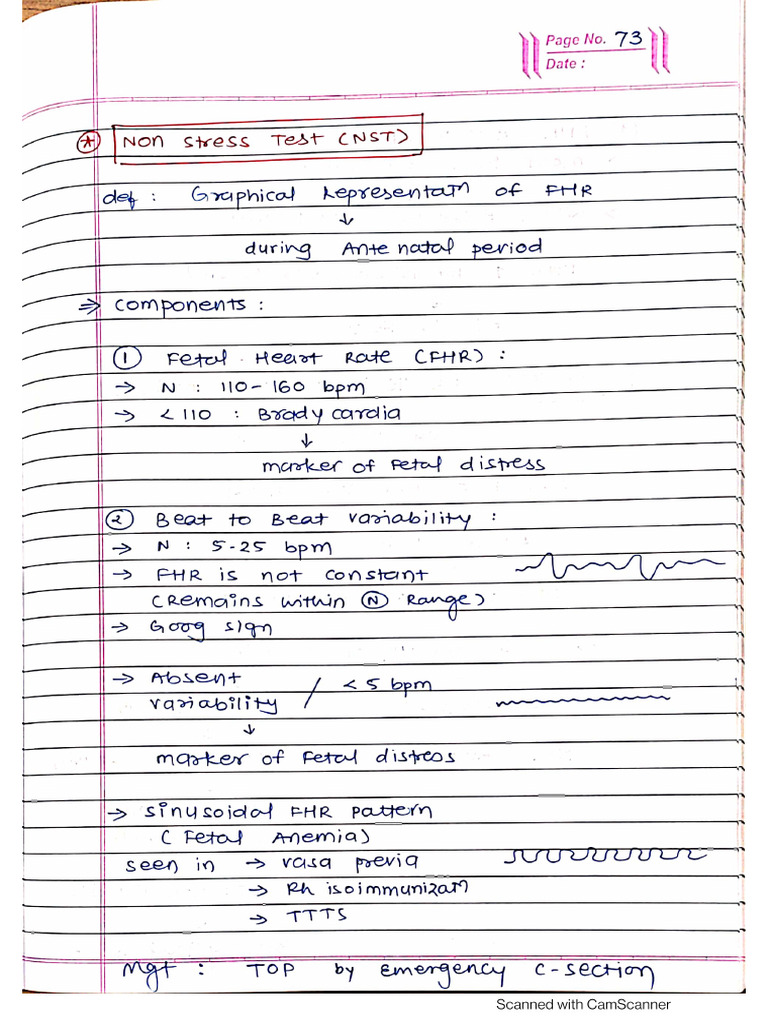 Page No. 73
Date :
* Non Stress Test (NST)
def : Graphical Representatn of FHR
↓
during Ante natal period
⇒ components :
① Fetal Heart Rate (FHR) :
→ N : 110-160 bpm
→ < 110 : Bradycardia
↓
marker of Fetal distress
② Beat to Beat variability :
→ N : 5-25 bpm
→ FHR is not constant
(Remains within Ⓝ Range)
→ Goog sign
→ Absent variability / < 5 bpm
↓
marker of Fetal distress
→ sinusoidal FHR pattern
( Fetal Anemia)
seen in → vasa previa
→ Rh isoimmunizatn
→ TTTS
Mgt : TOP by Emergency C-section
Scanned with CamScanner